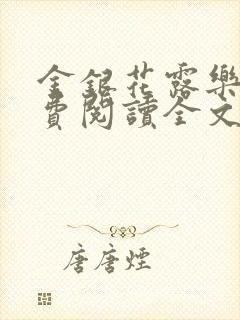 金銀花露樂
費閱讀全文
唐唐煙